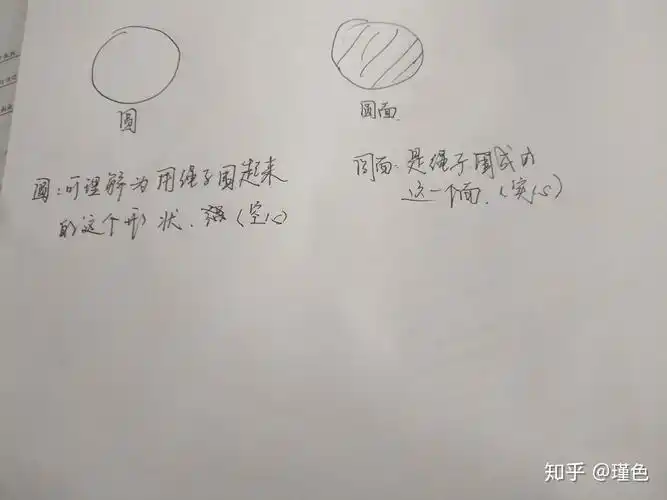 圆
圆面.
圆:可理解为用绳子围起来
的这个形状.(空心)
圆面:是绳子围成的
这一个面.(实心)
知乎 @瑾色